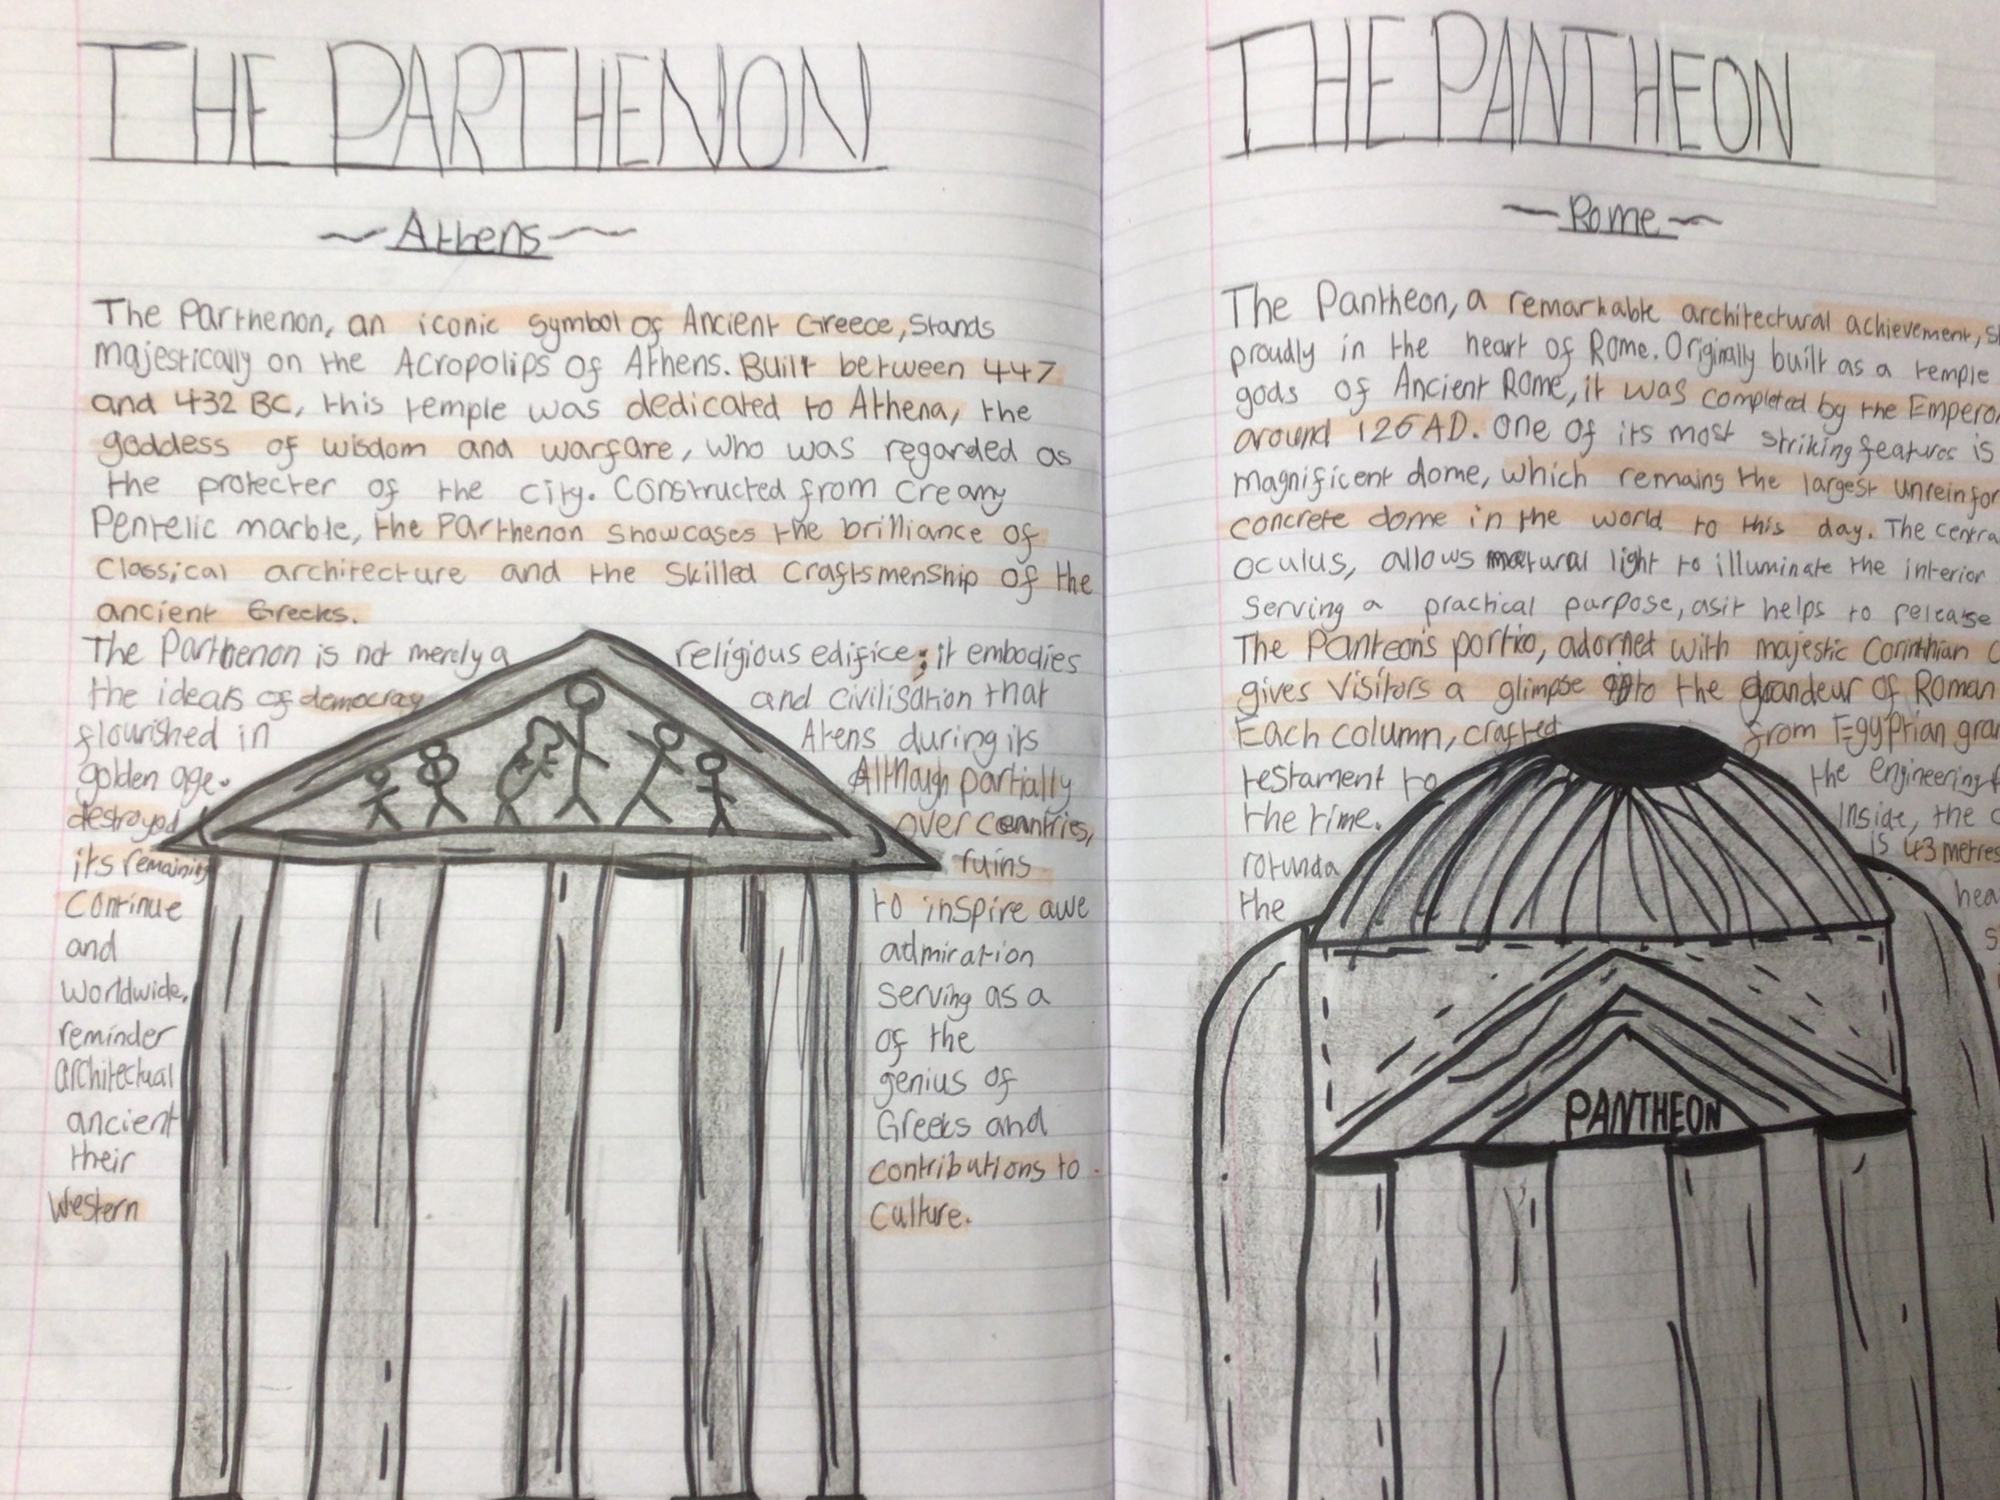 THE PARTHENON
~Athens~
The Parthenon, an iconic symbol of Ancient Greece, stands
majestically on the Acropolips of Athens. Built between 447
and 432 BC, this temple was dedicated to Athena, the
goddess of wisdom and warfare, who was regarded as
the protecter of the city. Constructed from creamy
Pentelic marble, the Parthenon showcases the brilliance of
Classical architecture and the skilled craftsmenship of the
ancient Greeks.
The Parthenon is not merely a religious edifice; it embodies
the ideals of democracy and civilisation that
flourished in Atens during its
golden age. Although partially
destroyed over centries,
its remaining ruins
continue to inspire awe
and admiration
worldwide, serving as a
reminder of the
architectual genius of
ancient Greeks and
their contributions to
Western Culture.
THE PANTHEON
~Rome~
The Pantheon, a remarkable architectural achievement,
proudly in the heart of Rome. Originally built as a temple
gods of Ancient Rome, it was completed by the Empero
around 126 AD. One of its most striking features is
magnificent dome, which remains the largest unreinfor
concrete dome in the world to this day. The centra
oculus, allows natural light to illuminate the interior
serving a practical purpose, asit helps to release
The Panteon's portico, adornet with majestic Corinthian
gives visitors a glimpse into the grandeur of Roman
Each column, crafted from Egyptian gran
testament to the engineering
the time. Inside, the
rotunda is 43 metres
the hea
PANTHEON